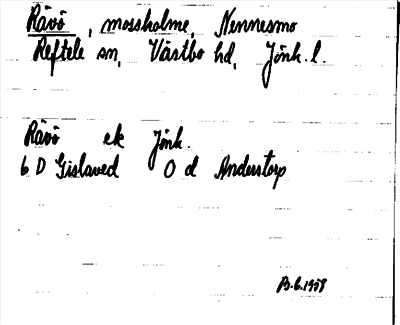 Rävö, mossholme, Nennesmo
Reftele sn, Västbo hd, Jönk. l.
Rävö ek Jönk.
6 D Gislaved O d Anderstorp
B.G. 1958